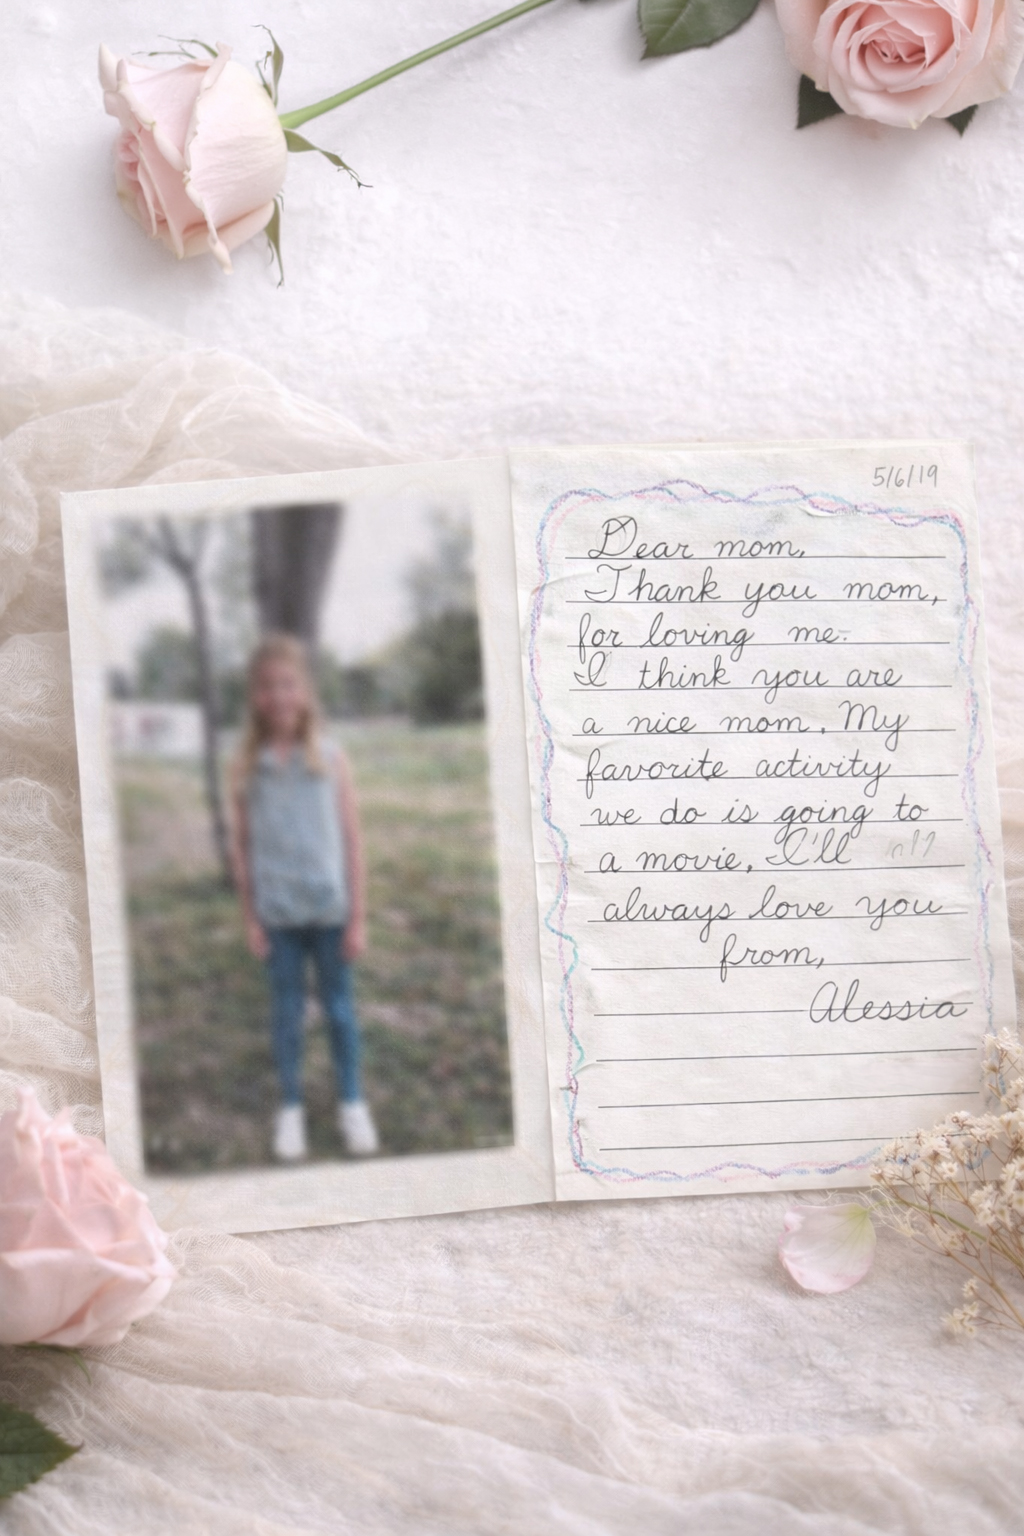 5/6/19
Dear mom,
Thank you mom,
for loving me.
I think you are
a nice mom. My
favorite activity
we do is going to
a movie. I'll
always love you
from,
Alessia